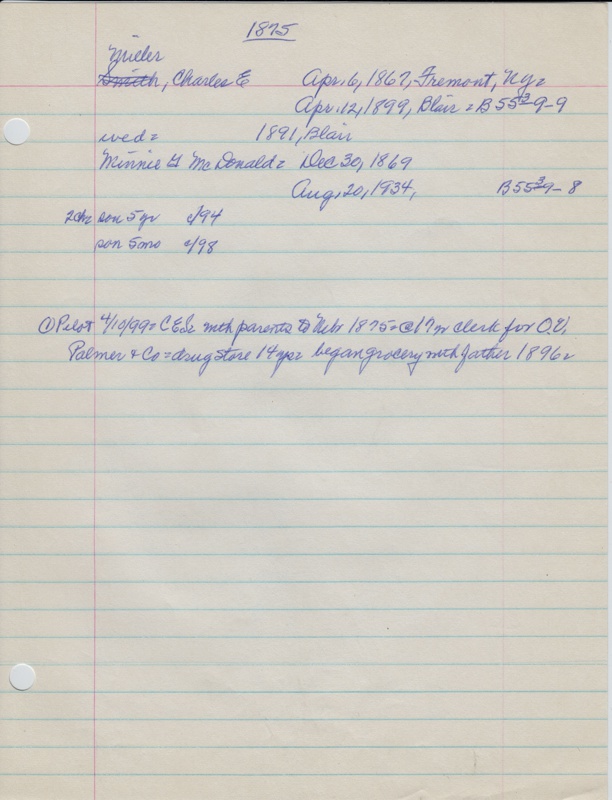 1875
Miller
Smith, Charles E Apr. 6, 1867, Fremont, Ny=
Apr. 12, 1899, Blair = B 55 3 9-9
wed= 1891, Blair
Minnie G McDonald= Dec 30, 1869
Aug. 20, 1934, B55 3 9-8
2ch= son 5 yr c/94
son 5mo c/98
① Pilot 4/10/99= C E S= with parents to Nebr 1875= @ 17 clerk for O.V.
Palmer & Co = drug store 14 yrs= began grocery with father 1896=